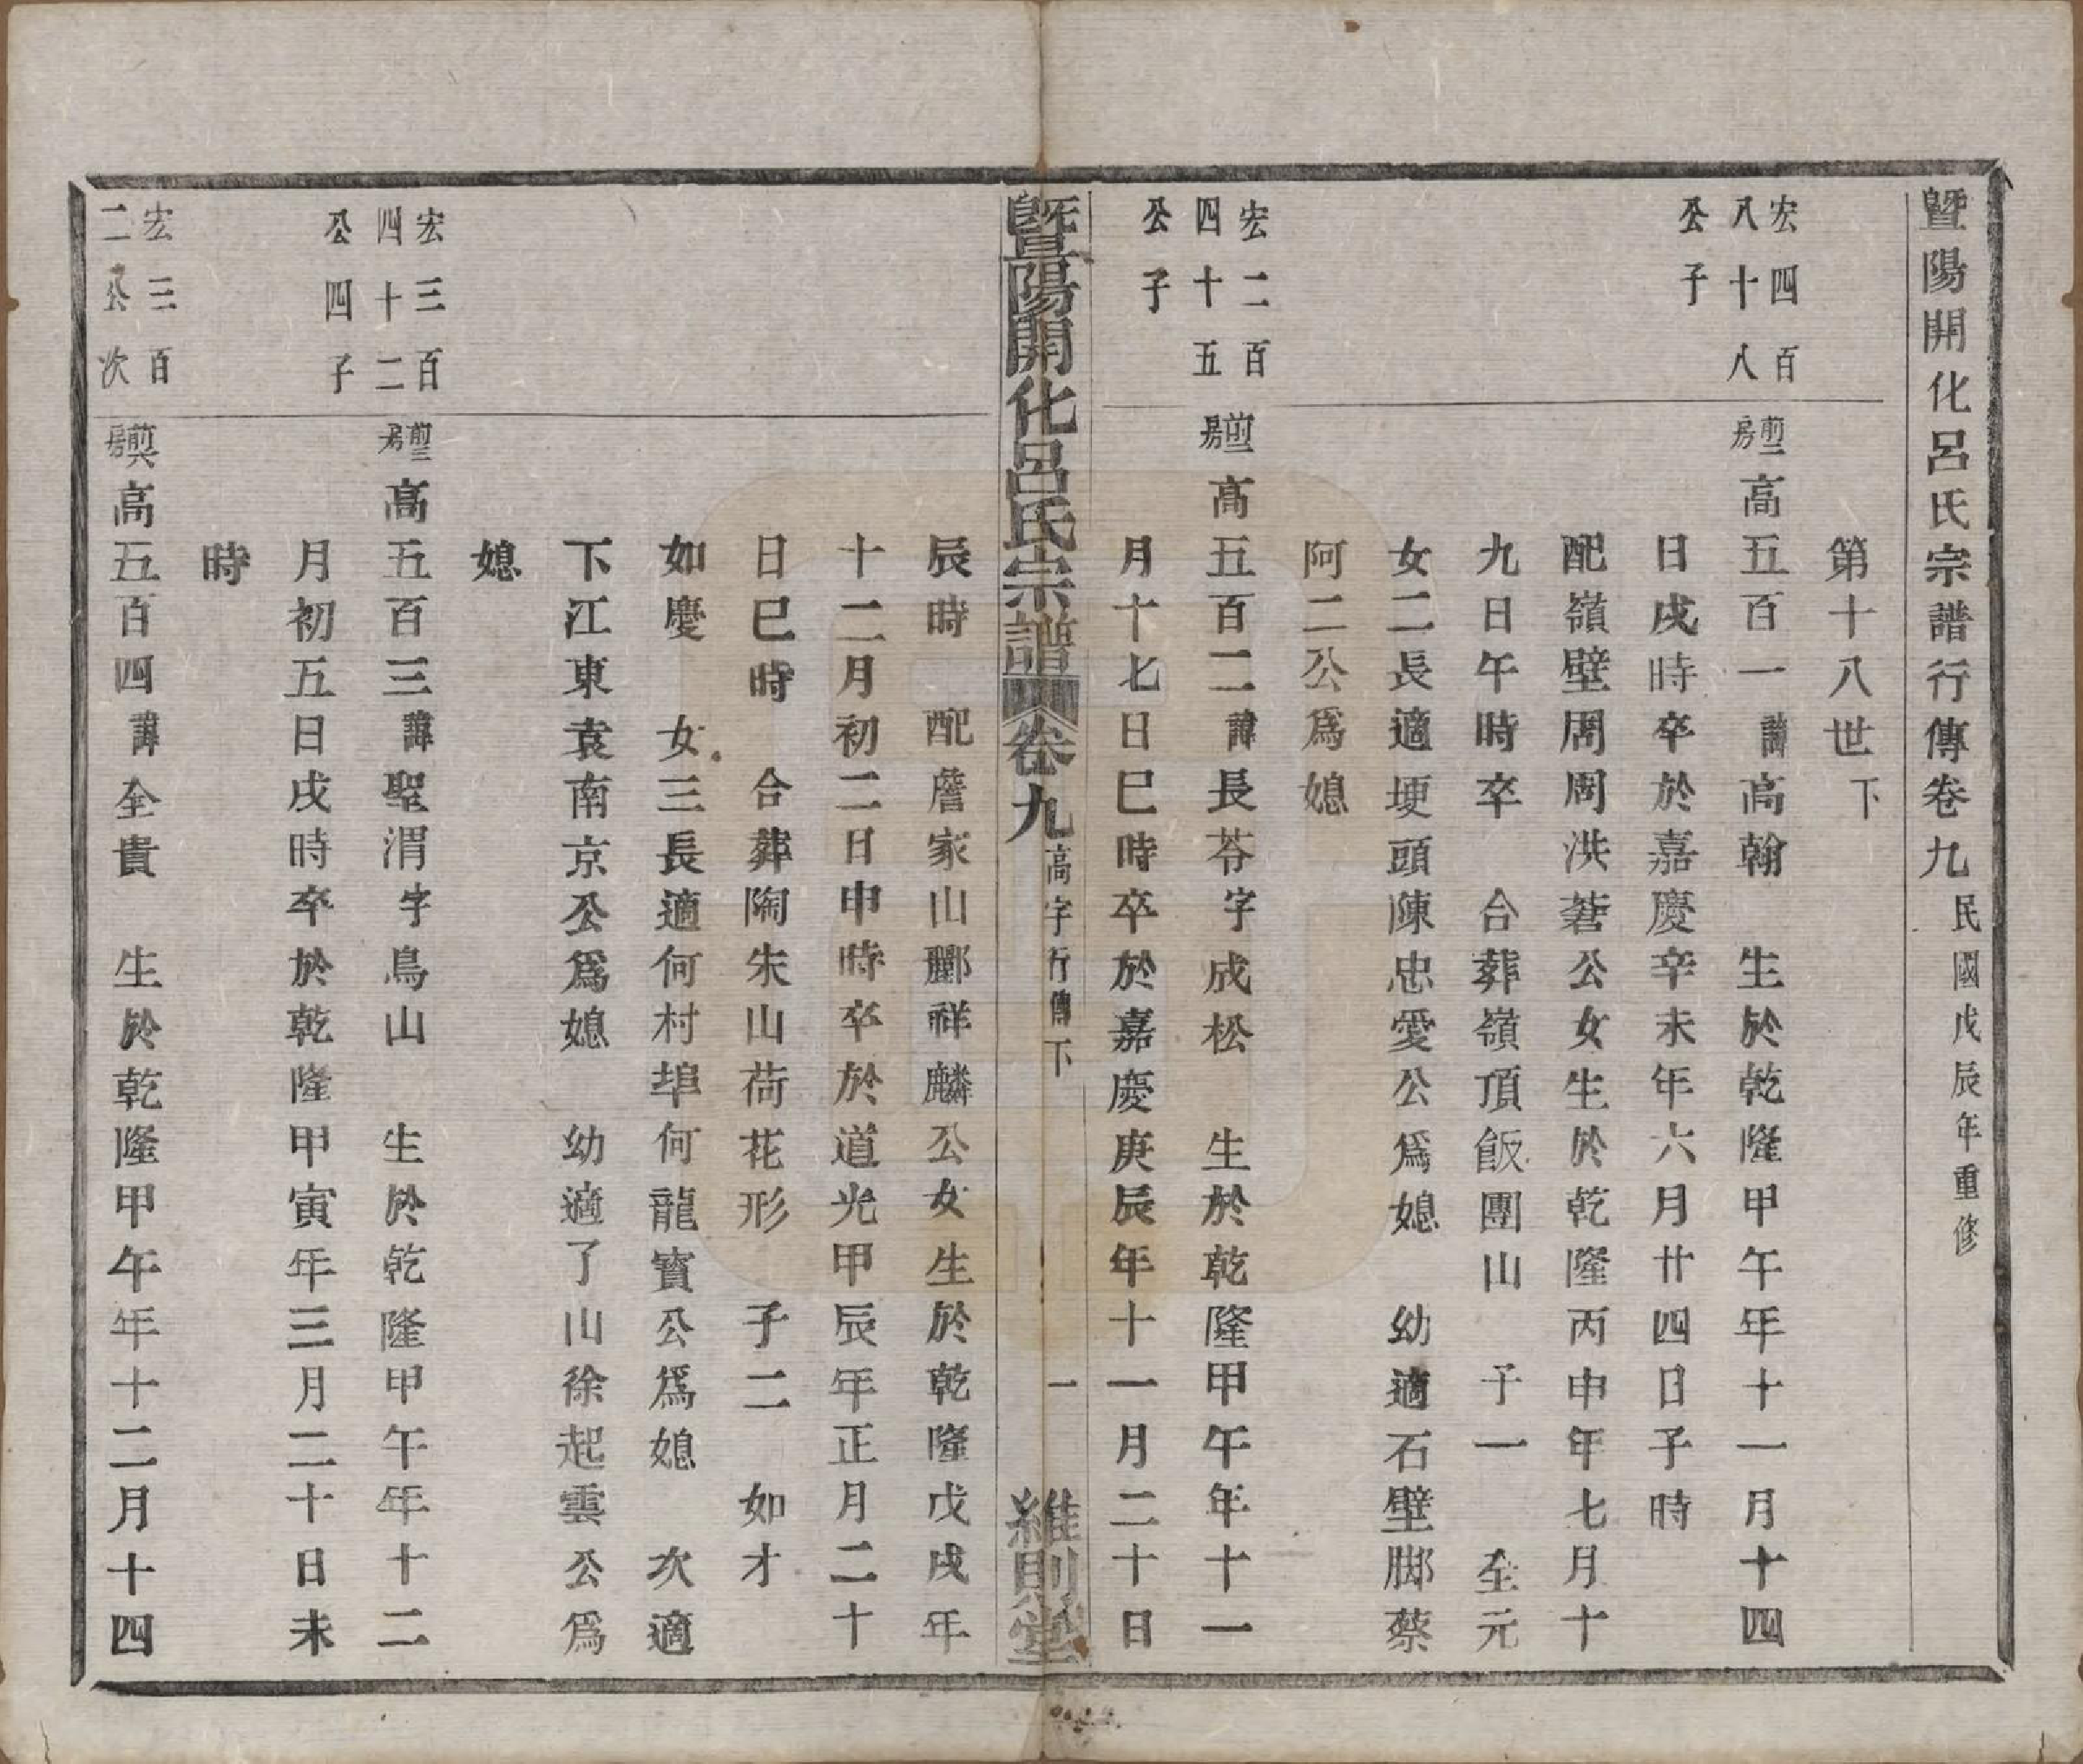 暨陽開化呂氏宗譜行傳卷九民國戊辰年重修
第十八世下
宏四百
八十八
公子
房
高五百一諱高翰　生於乾隆甲午年十一月十四
日戌時卒於嘉慶辛未年六月廿四日子時
配嶺壁周周洪蒼公女生於乾隆丙申年七月十
九日午時卒　合葬嶺頂飯團山　子一　至元
女二長適埂頭陳忠愛公爲媳　幼適石壁腳蔡
阿二公爲媳
宏二百
四十五
公子
房
高五百二諱長苓字成松　生於乾隆甲午年十一
月十七日巳時卒於嘉慶庚辰年十一月二十日
暨陽開化呂氏宗譜卷九高字行傳下　一　維則堂
辰時　配詹家山酈祥麟公女生於乾隆戊戌年
十二月初二日申時卒於道光甲辰年正月二十
日巳時　合葬陶朱山荷花形　子二　如才
如慶　女三長適何村埠何龍寶公爲媳　次適
下江東袁南京公爲媳　幼適了山徐起雲公爲
媳
宏三百
四十二
公四子
房
高五百三諱聖渭字鳥山　生於乾隆甲午年十二
月初五日戌時卒於乾隆甲寅年三月二十日未
時
宏三百
二公次
房
高五百四諱全貴　生於乾隆甲午年十二月十四